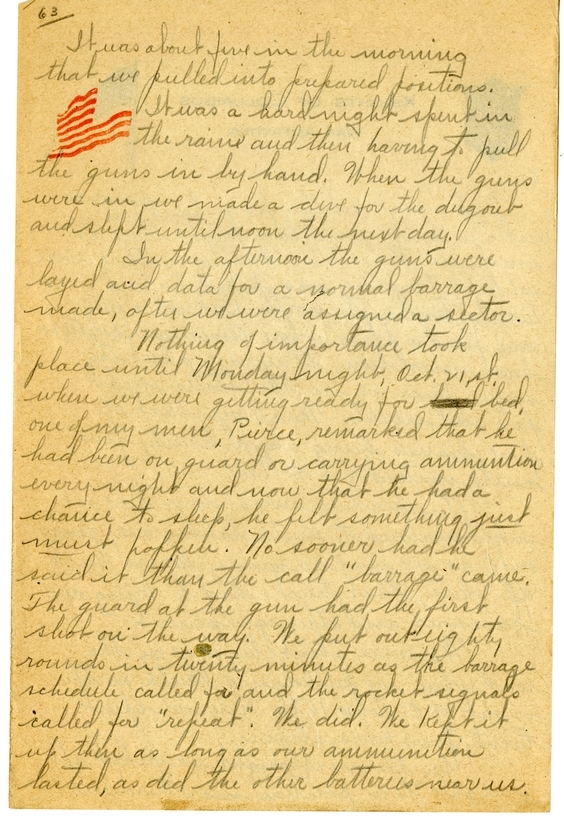 63
It was about five in the morning
that we pulled into prepared positions.
It was a hard night spent in
the rain and then having to pull
the guns in by hand. When the guns
were in we made a dive for the dugout
and slept until noon the next day.
In the afternoon the guns were
layed and data for a normal barrage
made, after we were assigned a sector.
Nothing of importance took
place until Monday night, Oct. 21, st.
when we were getting ready for bed,
one of my men, Pierce, remarked that he
had been on guard or carrying ammuntion
every night and now that he had a
chance to sleep, he felt something just
must happen. No sooner had he
said it than the call "barrage" came.
The guard at the gun had the first
shot on the way. We put out eighty
rounds in twenty minutes as the barrage
schedule called for and the rocket signals
called for "repeat". We did. We kept it
up then as long as our ammunition
lasted, as did the other batteries near us.